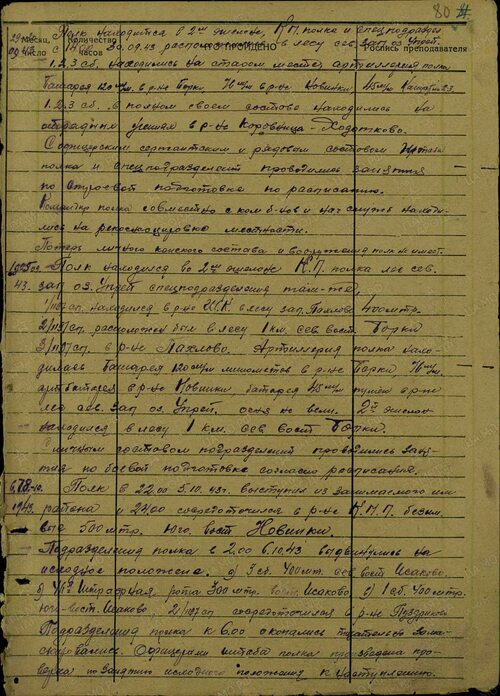 80
Месяц, число
Количество часов
ПРОЙДЕНО
Роспись преподавателя
Полк находится в 2ом эшелоне, К.П. полка и спецподраздел
в лесу сев. зап. оз. Упрей.
1.2.3 сб. находились на старом месте, артиллерия полка
Батарея 120 м/м. в р-не Борки, 76 м/м в р-не Новинки, 45 м/м
1.2.3 сб. в полном своем составе находились на
в р-не Коровница - Ходотково.
С офицерским сержантским и рядовым составом штаба
полка и спецподразделений проводились занятия
по строевой подготовке по расписанию.
Командир полка совместно с ком. б-нов и нач. служб находи-
лись на рекогносцировке местности.
Потерь личного конского состава и вооружения полк не имеет.
Полк находился во 2ом эшелоне К.П. полка лес сев.
43. зап. оз. Упрей спецподразделения там-же,
1/1197сп. находился в р-не в лесу зап. 400 мтр.
2/1197сп. расположен был в лесу 1 км. сев. вост. Борки
3/1197сп. в р-не Пахлово. Артиллерия полка нахо-
дилась батарея 120 м/м минометов в р-не Борки, 76 м/м.
арт. батарея в р-не Новинки батарея 45 м/м пушек в р-не
лес сев. зап. оз. Упрей. огня не вели. 2ой эшелон
находился в лесу 1 км. сев. вост. Борки.
С личным составом подразделений проводились заня-
тия по боевой подготовке согласно расписания.
Полк в 22.00 5.10.43г. выступил из занимаемого им
1943. района и 24.00 сосредоточился в р-не К.П.П. безым.
выс. 500 мтр. юго. вост. Новинки.
Подразделения полка в 2.00 6.10.43 выдвинулись на
исходное положение. а) 3 сб. 400 мт. сев. вост. Исаково.
б) 46я штрафная рота 300 мтр. вост. Исаково в) 1 сб. 400 мтр.
юго-вост. Исаково 2/1197сп сосредоточился в р-не
Подразделения полка к 6.00 окопались тщательно зама-
скировались. Офицерами штаба полка произведена про-
верка по занятию исходного положения к наступлению.